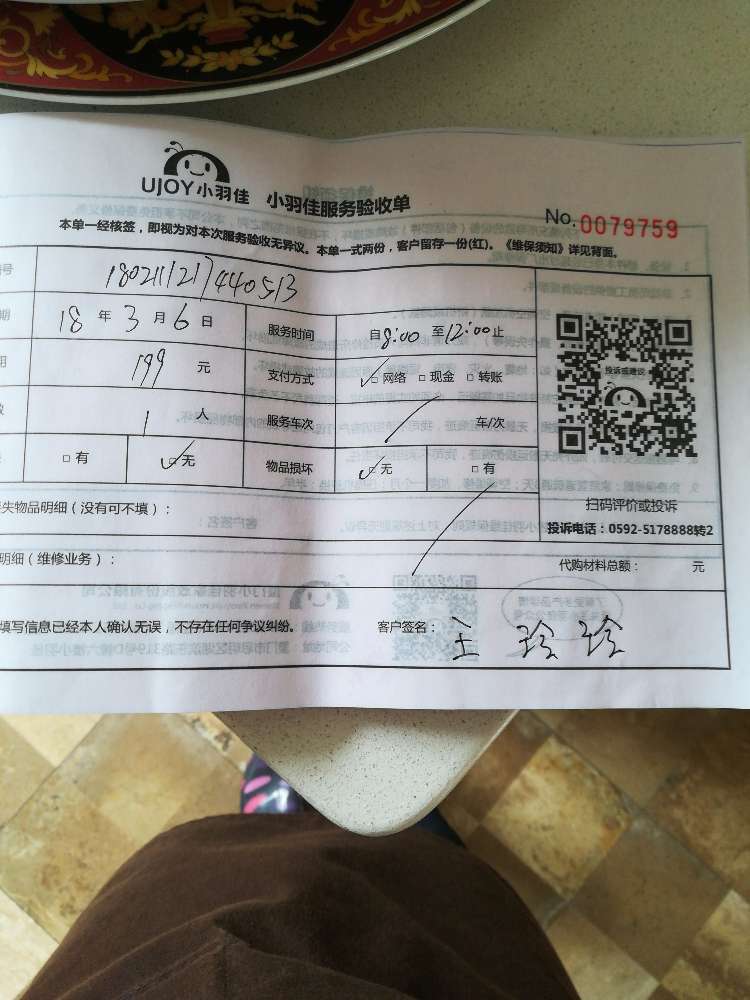 UJOY小羽佳 小羽佳服务验收单
No. 0079759
本单一经核签，即视为对本次服务验收无异议。本单一式两份，客户留存一份(红)。《维保须知》详见背面。
号 180211217440513
期 18 年 3 月 6 日 服务时间 自8:00 至12:00止
199 元 支付方式 □网络 □现金 □转账
投诉或建议
1 人 服务车次 车/次
□有 □无 物品损坏 □无 □有
失物品明细（没有可不填）：
扫码评价或投诉
投诉电话：0592-5178888转2
明细（维修业务）：
代购材料总额： 元
填写信息已经本人确认无误，不存在任何争议纠纷。 客户签名：王玲玲